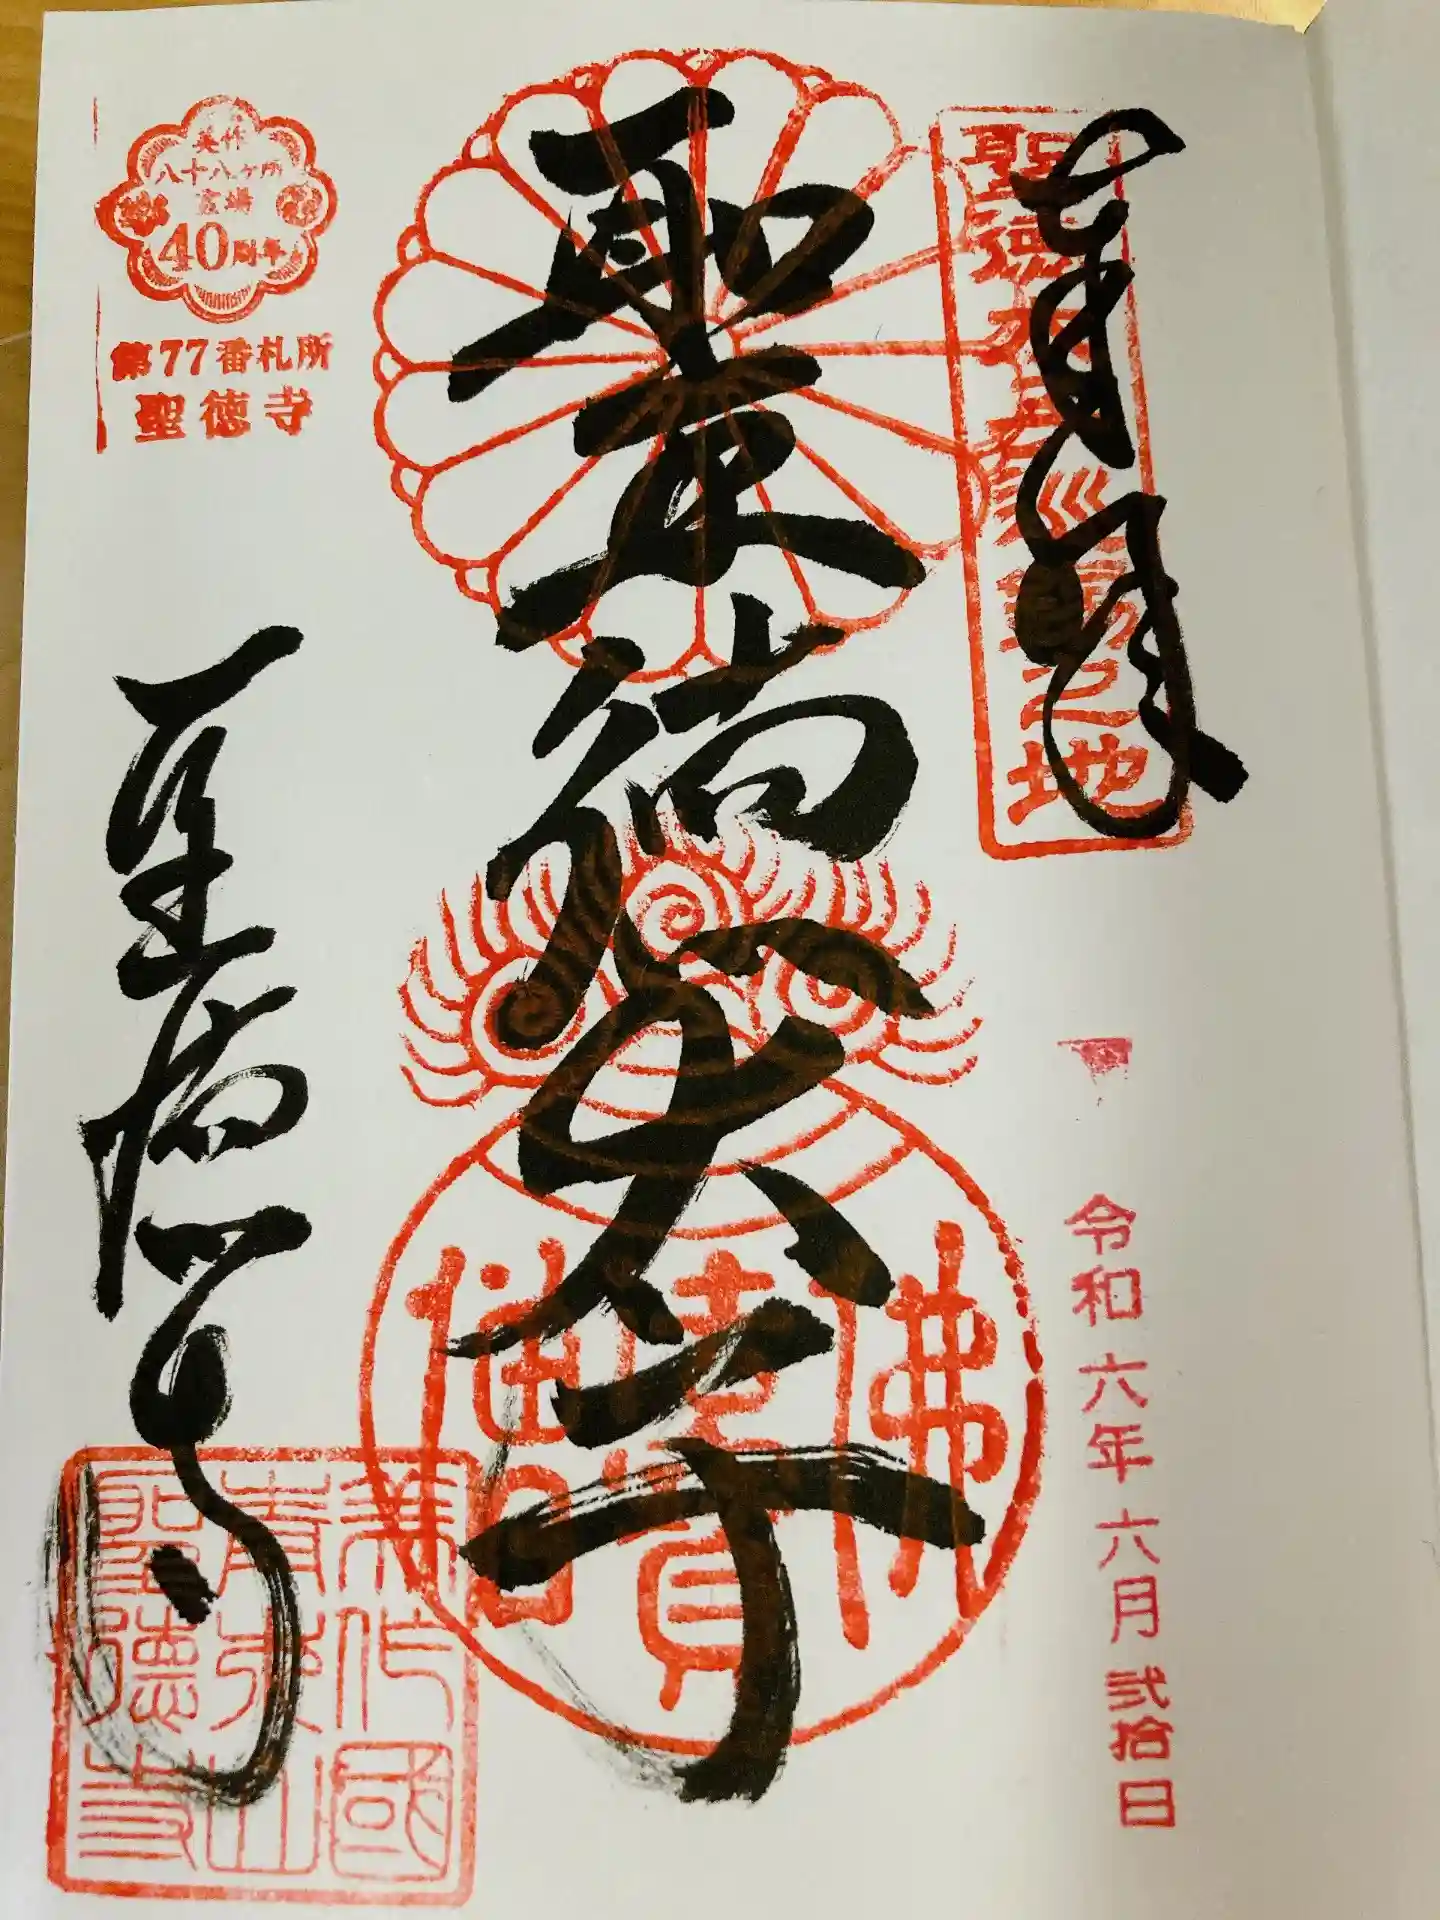 聖徳太子巡錫之地
令和六年六月弐拾日
聖徳太子
佛法僧寶
美作
八十八ヶ所
霊場
40周年
第77番札所
聖徳寺
聖徳寺
美作國
聖徳寺